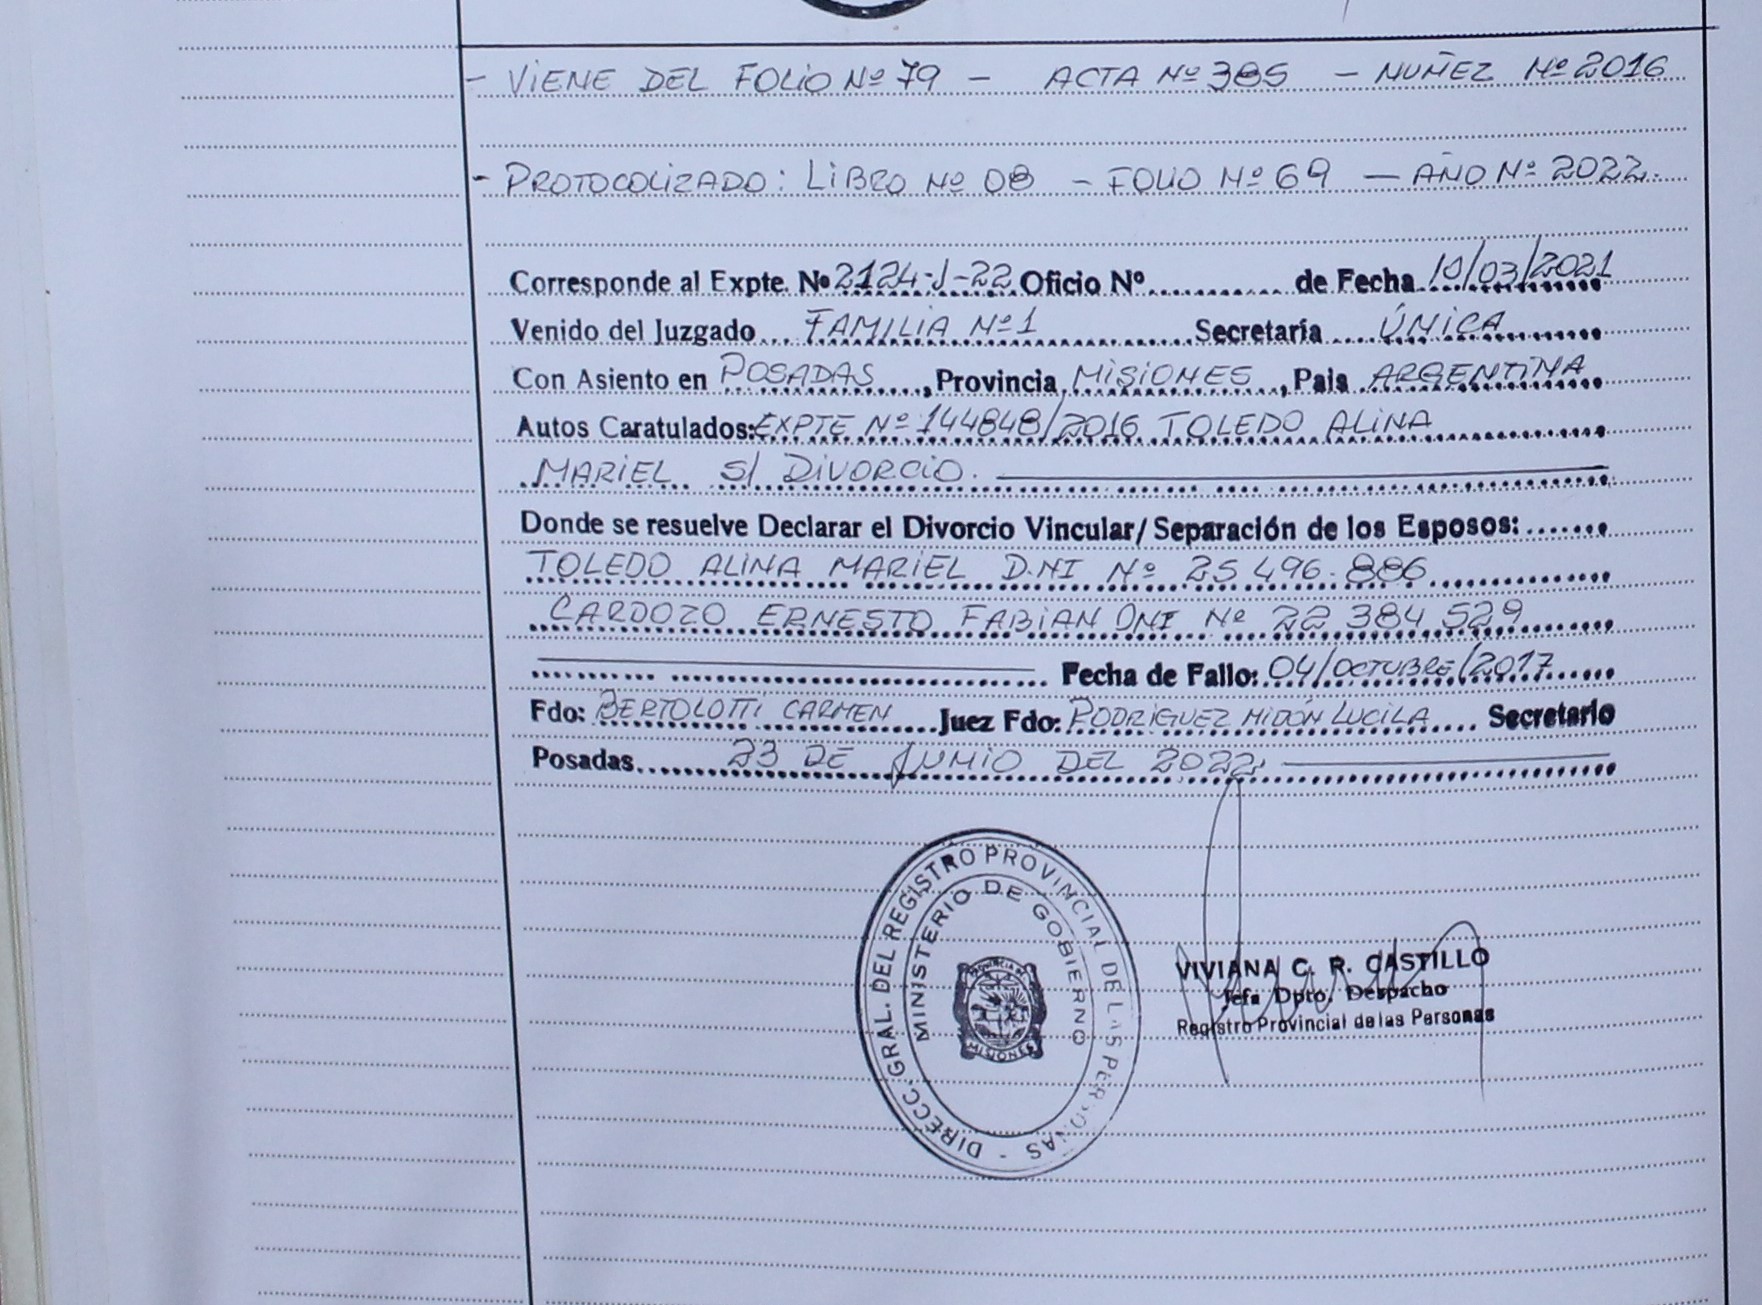 - VIENE DEL FOLIO Nº 79 - ACTA Nº 385 - NUÑEZ Nº 2016
- PROTOCOLIZADO: LIBRO Nº 08 - FOLIO Nº 69 - AÑO Nº 2022.
Corresponde al Expte. Nº 2124-J-22 Oficio Nº............ de Fecha 10/03/2021
Venido del Juzgado... FAMILIA Nº 1 ............Secretaría .... ÚNICA.......
Con Asiento en POSADAS....., Provincia MISIONES..., Pais ARGENTINA
Autos Caratulados: EXPTE Nº 144848/2016 TOLEDO ALINA
MARIEL S/ DIVORCIO.
Donde se resuelve Declarar el Divorcio Vincular/Separación de los Esposos:.......
TOLEDO ALINA MARIEL D.NI Nº 25 496.886
CARDOZO ERNESTO FABIAN DNI Nº 22 384 529
Fecha de Fallo: 04/OCTUBRE/2017
Fdo: BERTOLOTTI CARMEN.... Juez Fdo: RODRIGUEZ MIDÓN LUCILA.... Secretario
Posadas....... 23 DE JUNIO DEL 2022.
DIRECC. GRAL. DEL REGISTRO PROVINCIAL DE LAS PERSONAS -
MINISTERIO DE GOBIERNO
PROVINCIA DE
MISIONES
VIVIANA C. R. CASTILLO
Jefa Dpto. Despacho
Registro Provincial de las Personas